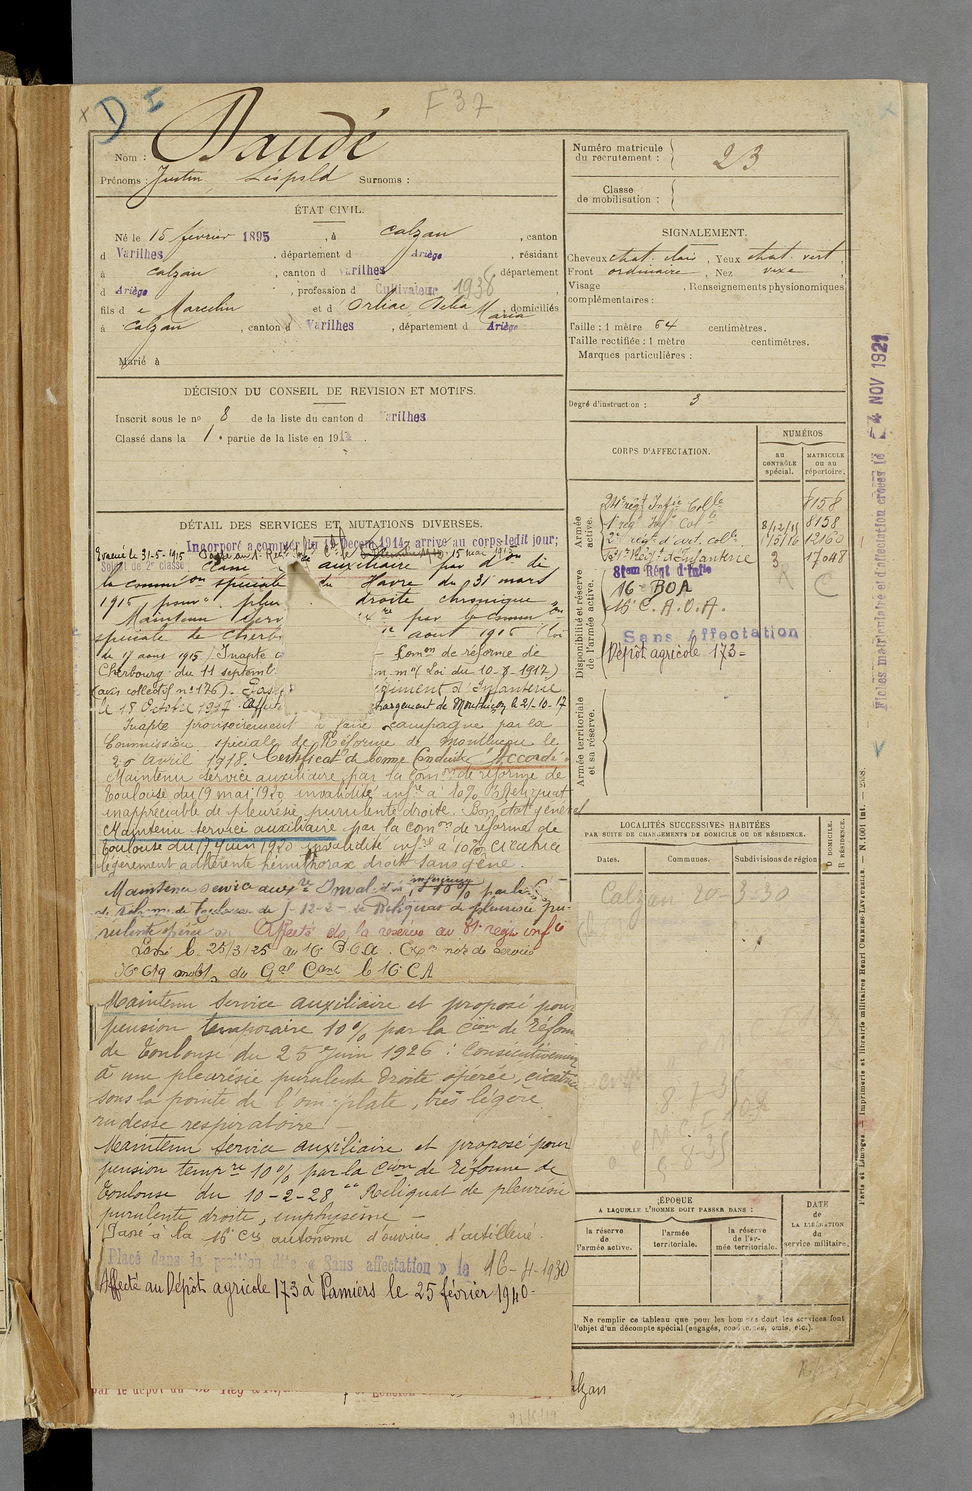 D I
F 37
Nom : Daudé
Prénoms : Justin Léopold Surnoms :
ÉTAT CIVIL.
Né le 15 février 1895, à Calzan, canton
d Varilhes, département d Ariège, résidant
à Calzan, canton d Varilhes département
d Ariège, profession d Cultivateur 1938
fils d e Marcelin et d Orliac, Delia Maria domiciliés
à Calzan, canton d Varilhes, département d Ariège
Marié à
DÉCISION DU CONSEIL DE REVISION ET MOTIFS.
Inscrit sous le nº 8 de la liste du canton d Varilhes
Classé dans la 1e partie de la liste en 191
DÉTAIL DES SERVICES ET MUTATIONS DIVERSES.
Incorporé a compter du Décem 1914, arrivé au corps ledit jour;
Soldat de 2e classe
Classé auxiliaire par don de
la commion spéciale du Havre du 31 mars
1915 pour pleu droite chronique
Maintenu serv par la commion
spéciale de Cherb août 1915
le 17 aout 1915 / Inapte Comon de réforme de
Cherbourg du 11 septemb Loi du 10-8-1917)
(avis collectif nº 176). Pass giment d'Infanterie
le 18 Octobre 1917. Affect chargement de Montluçon le 21-10-17
Inapte provisoirement à faire campagne par la
Commission spéciale de Réforme de Montluçon le
20 avril 1918. Certificat de bonne Conduite "Accordé"
Maintenu service auxiliaire par la Comon de réforme de
Toulouse du 19 mai 1920 invalidité infre à 10% Reliquat
inappréciable de pleurésie purulente droite. Bon état général
Maintenu service auxiliaire par la comon de réforme de
Toulouse du 17 Juin 1920 invalidité infre à 10% cicatrice
légèrement adhérente hémithorax droit sans gêne.
Maintenu service auxre Invalidité inférieure à 10% par la C
de Réforme de Toulouse du Reliquat de pleurésie pu-
rulente opérée Affecté ds la réserve au 81e régt infie
Passé le 25/3/25 au 16e B.O.A.
Nº 619 du Gal Cant le 16e CA
Maintenu Service auxiliaire et proposé pour
pension temporaire 10% par la Cion de Réform
de Toulouse du 25 Juin 1926 : Consécutivement
à une pleurésie purulente droite opérée, cicatrice
sous la pointe de l'omoplate, très légère
rudesse respiratoire. –
Maintenu Service auxiliaire et proposé pour
pension tempre 10% par la Cion de Réforme de
Toulouse du 10-2-28 "" Reliquat de pleurésie
purulente droite, emphysème –
Passé à la 16e Cie autonome d'ouvriers d'artillerie.
Placé dans la position dite « Sans affectation » le 16-4-1930
Affecté au Dépôt agricole 173 à Pamiers le 25 février 1940-
Calzan
Numéro matricule du recrutement : 23
Classe de mobilisation :
SIGNALEMENT.
Cheveux chat. clair, Yeux chat. vert,
Front ordinaire, Nez vexe
Visage, Renseignements physionomiques
complémentaires :
Taille : 1 mètre 64 centimètres.
Taille rectifiée : 1 mètre centimètres.
Marques particulières :
Degré d'instruction : 3
CORPS D'AFFECTATION.
NUMÉROS
AU CONTRÔLE spécial.
MATRICULE ou au répertoire.
Armée active.
24e régt Infie Colle 8158
1er régt Infie Cole 8158
2e régt d'art. colle 12160
Régt d'Infanterie 3 17048
Disponibilité et réserve de l'armée active.
81em Régt d'Infie R C
16e BOA
16e C.A.O.A.
Sans affectation
Dépôt agricole 173-
Armée territoriale et sa réserve.
LOCALITÉS SUCCESSIVES HABITÉES
PAR SUITE DE CHANGEMENTS DE DOMICILE OU DE RÉSIDENCE.
Dates.
Communes.
Subdivisions de région
D DOMICILE. R RÉSIDENCE.
Calzan 20-3-30
ÉPOQUE
A LAQUELLE L'HOMME DOIT PASSER DANS :
la réserve de l'armée active.
l'armée territoriale.
la réserve de l'armée territoriale.
DATE de LA LIBÉRATION du service militaire.
Ne remplir ce tableau que pour les hommes dont les services font
l'objet d'un décompte spécial (engagés, condamnés, omis, etc.).
Fiches matriculaire et d'affectation créées le 24 NOV 1921
Paris et Limoges. — Imprimerie et librairie militaires Henri CHARLES-LAVAUZELLE. — N. 1001 Int. —